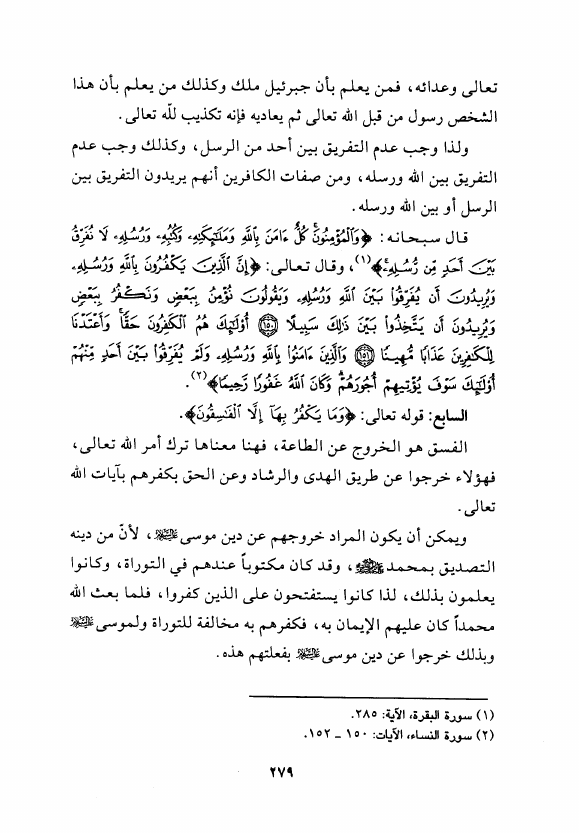 تعالى وعدائه، فمن يعلم بأن جبرئيل ملك وكذلك من يعلم بأن هذا
الشخص رسول من قبل الله تعالى ثم يعاديه فإنه تكذيب لله تعالى.
ولذا وجب عدم التفريق بين أحد من الرسل، وكذلك وجب عدم
التفريق بين الله ورسله، ومن صفات الكافرين أنهم يريدون التفريق بين
الرسل أو بين الله ورسله.
قال سبحانه: ﴿وَالْمُؤْمِنُونَ كُلٌّ ءَامَنَ بِاللَّهِ وَمَلَٰٓئِكَتِهِۦ وَكُتُبِهِۦ وَرُسُلِهِۦ لَا نُفَرِّقُ
بَيْنَ أَحَدٍ مِّن رُّسُلِهِۦ﴾(١)، وقال تعالى: ﴿إِنَّ الَّذِينَ يَكْفُرُونَ بِاللَّهِ وَرُسُلِهِۦ
وَيُرِيدُونَ أَن يُفَرِّقُوا۟ بَيْنَ اللَّهِ وَرُسُلِهِۦ وَيَقُولُونَ نُؤْمِنُ بِبَعْضٍ وَنَكْفُرُ بِبَعْضٍ
وَيُرِيدُونَ أَن يَتَّخِذُوا۟ بَيْنَ ذَٰلِكَ سَبِيلًا ﴿١٥٠﴾ أُو۟لَٰٓئِكَ هُمُ الْكَٰفِرُونَ حَقًّا وَأَعْتَدْنَا
لِلْكَٰفِرِينَ عَذَابًا مُّهِينًا ﴿١٥١﴾ وَالَّذِينَ ءَامَنُوا۟ بِاللَّهِ وَرُسُلِهِۦ وَلَمْ يُفَرِّقُوا۟ بَيْنَ أَحَدٍ مِّنْهُمْ
أُو۟لَٰٓئِكَ سَوْفَ يُؤْتِيهِمْ أُجُورَهُمْ وَكَانَ اللَّهُ غَفُورًا رَّحِيمًا﴾(٢).
السابع: قوله تعالى: ﴿وَمَا يَكْفُرُ بِهَآ إِلَّا الْفَٰسِقُونَ﴾.
الفسق هو الخروج عن الطاعة، فهنا معناها ترك أمر الله تعالى،
فهؤلاء خرجوا عن طريق الهدى والرشاد وعن الحق بكفرهم بآيات الله
تعالى.
ويمكن أن يكون المراد خروجهم عن دين موسى، لأنّ من دينه
التصديق بمحمد، وقد كان مكتوباً عندهم في التوراة، وكانوا
يعلمون بذلك، لذا كانوا يستفتحون على الذين كفروا، فلما بعث الله
محمداً كان عليهم الإيمان به، فكفرهم به مخالفة للتوراة ولموسى
وبذلك خرجوا عن دين موسى بفعلتهم هذه.
(١) سورة البقرة، الآية: ٢٨٥.
(٢) سورة النساء، الآيات: ١٥٠ – ١٥٢.
٢٧٩